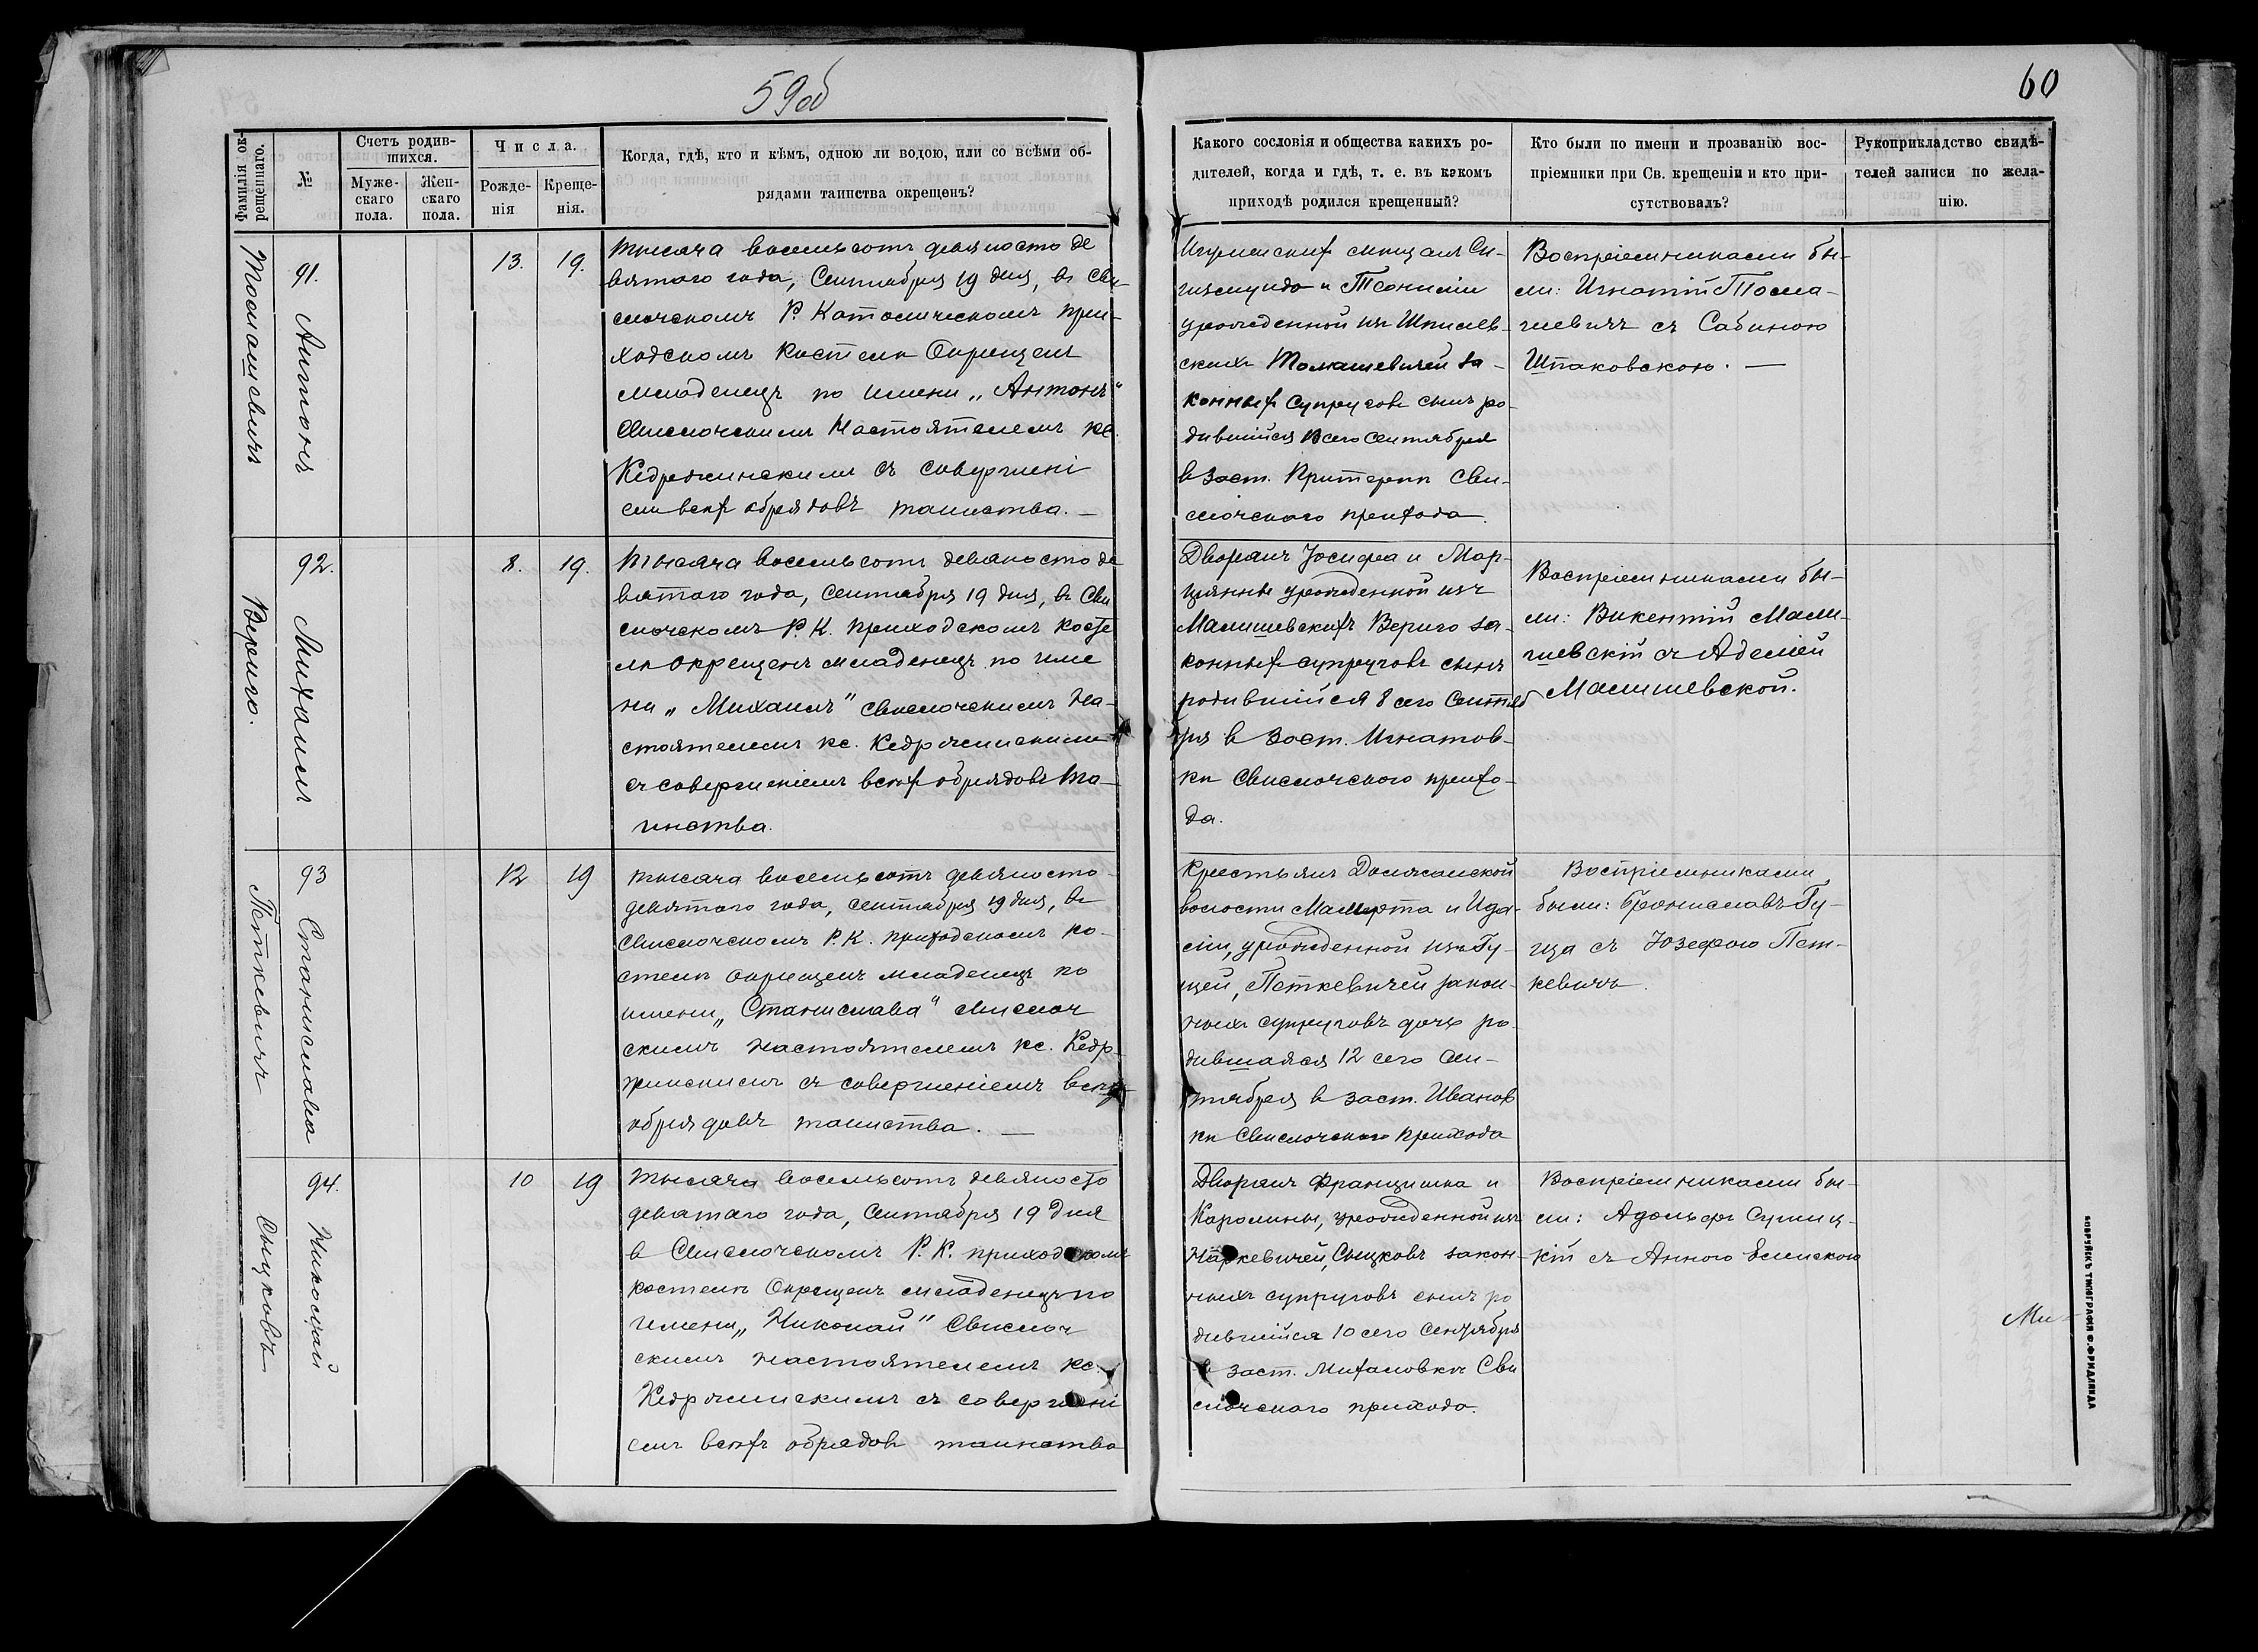 59об
60
Фамилія ок-
рещеннаго.
№
Счетъ родив-
шихся.
Муже-
скаго
пола.
Жен-
скаго
пола.
Числа.
Рожде-
нія
Креще-
нія.
Когда, гдѣ, кто и кѣмъ, одною ли водою, или со всѣми об-
рядами таинства окрещенъ?
Какого сословія и общества какихъ ро-
дителей, когда и гдѣ, т. е. въ какомъ
приходѣ родился крещенный?
Кто были по имени и прозванію вос-
пріемники при Св. крещеніи и кто при-
сутствовалъ?
Рукоприкладство свидѣ-
телей записи по жела-
нію.
Томашевичъ
91.
Антонъ
13.
19.
Тысяча восемьсотъ девяносто де
вятого года, Сентября 19 дня, въ Сви-
слочскомъ Р. Католическомъ при-
ходскомъ костелѣ Окрещенъ
младенецъ по имени „Антонъ"
Свислочскимъ Настоятелемъ кс.
Кедржинскимъ съ совершені
емъ всѣхъ обрядовъ таинства. —
Игуменскихъ мѣщанъ Си-
гизмунда и Теофиліи
урожденной изъ Шпилев-
скихъ Томашевичей за-
конныхъ супруговъ сынъ ро-
дившійся 13 сего сентября
в заст. Притерпи Сви-
слочского прихода.
Воспріемниками бы-
ли: Игнатій Тома-
шевичъ съ Сабиною
Шпаковскою. —
Верыго.
92.
Михаилъ
8.
19.
Тысяча восемьсотъ девяносто де
вятого года, сентября 19 дня, въ Сви
слочскомъ Р. К. приходскомъ косте
лѣ окрещенъ младенецъ по име
ни „Михаилъ" свислочскимъ На-
стоятелемъ кс. Кедржинскимъ
съ совершеніемъ всѣхъ обрядовъ та-
инства.
Дворянъ Іосифа и Мар-
цянны урожденной изъ
Малишевскихъ Верыго за-
конныхъ супруговъ сынъ
родившійся 8 сего Сентяб
ря в заст. Игнатов-
ки Свислочского прихо-
да.
Воспріемниками бы-
ли: Викентій Мали-
шевскій съ Аделей
Малишевской.
Петкевичъ
93
Станислава
12
19
Тысяча восемьсотъ девяносто
девятого года, сентября 19 дня, въ
Свислочскомъ Р. К. приходскомъ ко-
стелѣ окрещенъ младенецъ по
имени „Станислава" свислоч
скимъ настоятелемъ кс. Кедр-
жинскимъ съ совершеніемъ всѣхъ
обрядовъ таинства. —
Крестьянъ Долясанской
волости Мамерта и Ида-
ліи, урожденной изъ Гу-
цей, Петкевичей закон-
ныхъ супруговъ дочь ро-
дившаяся 12 сего Сен-
тября в заст. Иванов
ки Свислочского прихода
Воспріемниками
были: Брониславъ Гу-
ца съ Юзефою Пет-
кевичъ.
Сыцковъ
94.
Николай
10
19
Тысяча восемьсотъ девяносто
девятаго года, Сентября 19 дня
в Свислочскомъ Р. К. приходскомъ
костелѣ Окрещенъ младенецъ по
имени „Николай" Свислоч
скимъ настоятелемъ кс.
Кедржинскимъ съ совершені
емъ всѣхъ обрядовъ таинства
Дворянъ Францишка и
Каролины, урожденной изъ
Наркевичей, Сыцковъ закон-
ныхъ супруговъ сынъ ро
дившійся 10 сего Сентября
в заст. Михаловки Сви
слочского прихода.
Воспріемниками бы-
ли: Адольфъ
съ Анною
Ми-
БОБРУЙСКЪ ТИПОГРАФІЯ Ф. ФРИДЛЯНДА